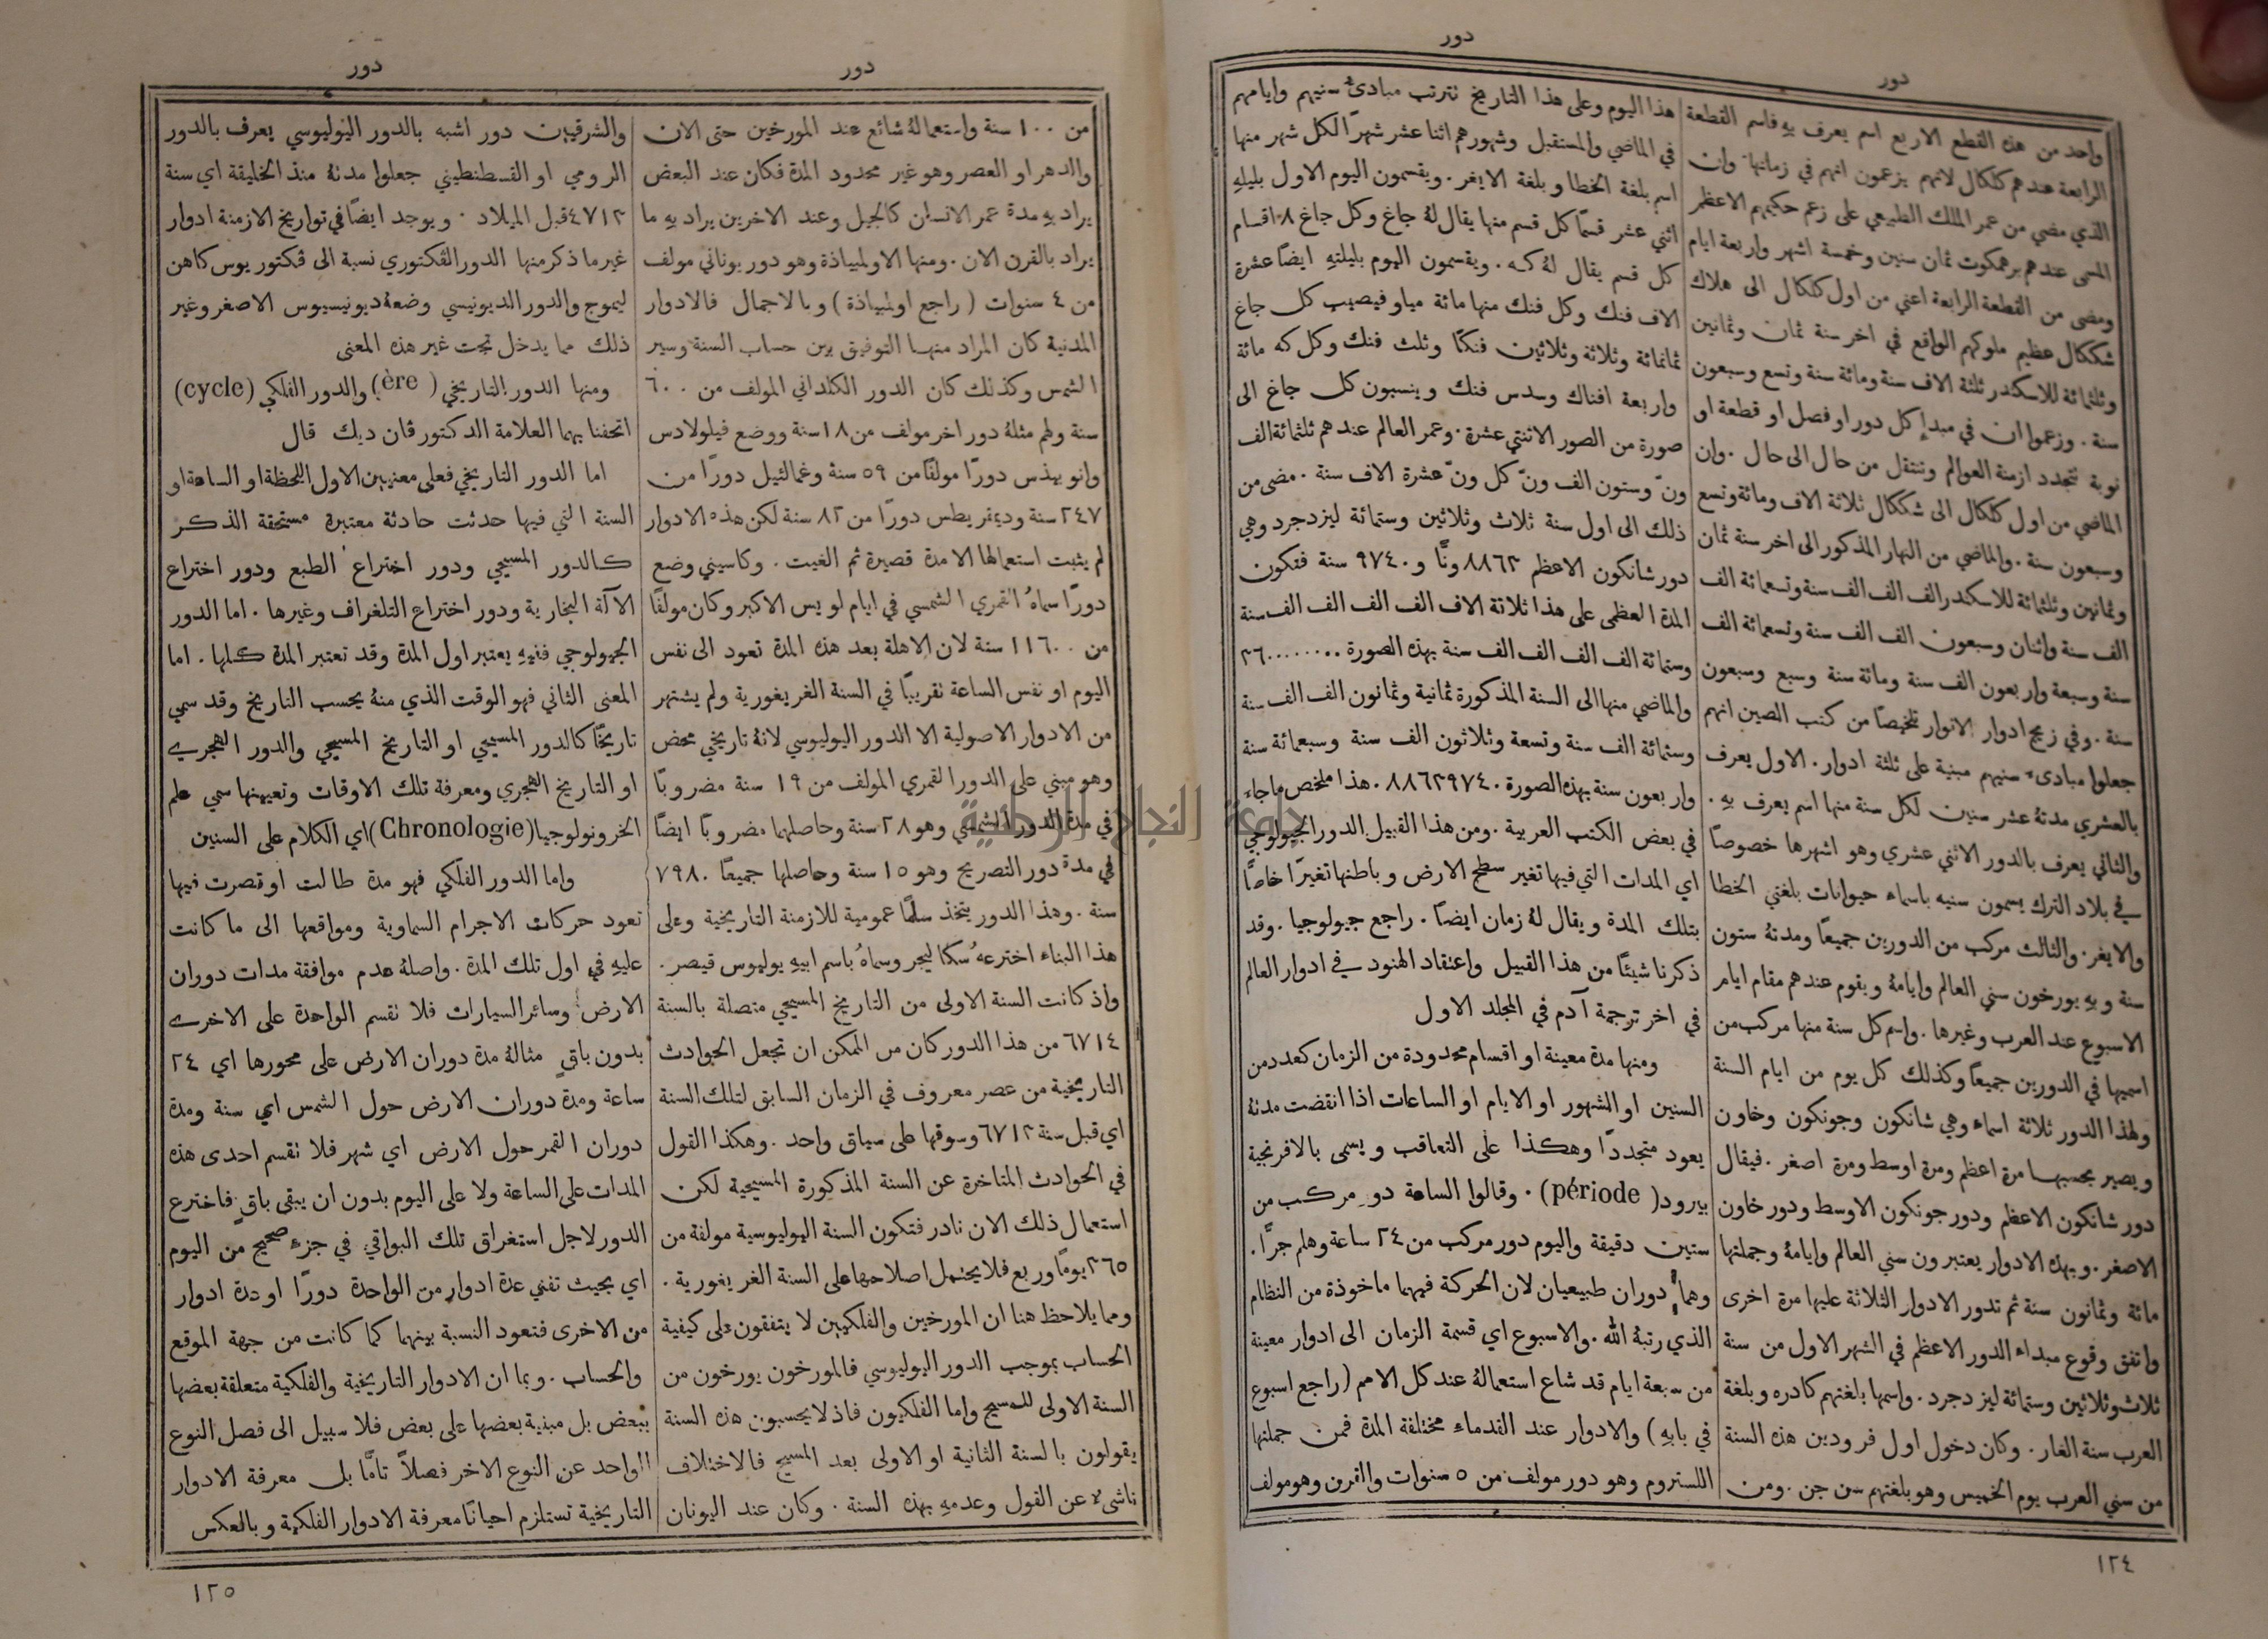 دور
دور
واحد من هذه القطع الاربع اسم يعرف به فاسم القطعة
الرابعة عندهم كلكال لانهم يزعمون انهم في زمانها. وان
الذي مضى من عمر الملك الطبيعي على زعم حكيمهم الاعظم
المسى عندهم برهمكوت ثمان سنين وخمسة اشهر واربعة ايام
ومضى من القطعة الرابعة اعني من اول كلكال الى هلاك
شككال عظيم ملوكهم الواقع في اخر سنة ثمان وثمانين
وثلثمائة للاسكندر ثلثة الاف سنة ومائة سنة وتسع وسبعون
سنة. وزعموا ان في مبدإ كل دور او فصل او قطعة او
نوبة تتجدد ازمنة العوالم وتنتقل من حال الى حال. وان
الماضي من اول كلكال الى شككال ثلاثة الاف ومائة وتسع
وسبعون سنة. والماضي من النهار المذكور الى اخر سنة ثمان
وثمانين وثلثمائة للاسكندر الف الف الف سنة وتسعمائة الف
الف سنة واثنان وسبعون الف الف سنة وتسعمائة الف
سنة وسبعة واربعون الف سنة ومائة سنة وسبع وسبعون
سنة. وفي زيج ادوار الانوار تلخيصا من كتب الصين انهم
جعلوا مبادىء سنيهم مبنية على ثلثة ادوار. الاول يعرف
بالعشري مدتهُ عشر سنين لكل سنة منها اسم يعرف بهِ.
والثاني يعرف بالدور الاثني عشري وهو اشهرها خصوصًا
في بلاد الترك يسمون سنيه باسماء حيوانات بلغتي الخطا
والايغر. والثالث مركب من الدورين جميعًا ومدتهُ ستون
سنة وبه يورخون سني العالم وايامهُ ويقوم عندهم مقام ايام
الاسبوع عند العرب وغيرها. واسم كل سنة منها مركب من
اسميها في الدورين جميعًا وكذلك كل يوم من ايام السنة
ولهذا الدور ثلاثة اسماء وهي شانكون وجونكون وخاون
ويصير بحسبها مرة اعظم ومرة اوسط ومرة اصغر. فيقال
دور شانكون الاعظم ودور جونكون الاوسط ودور خاون
الاصغر. وبهذه الادوار يعتبرون سني العالم وايامهُ وجملتها
مائة وثمانون سنة ثم تدور الادوار الثلاثة عليها مرة اخرى
واتفق وقوع مبداء الدور الاعظم في الشهر الاول من سنة
ثلاث وثلاثين وستمائة ليزدجرد. واسمها بلغتهم كادره وبلغة
العرب سنة الفار. وكان دخول اول فرودين هذه السنة
من سني العرب يوم الخميس وهو بلغتهم سن جن. ومن
هذا اليوم وعلى هذا التاريخ تترتب مبادئ سنيهم وايامهم
في الماضي والمستقبل وشهورهم اثنا عشر شهرًا لكل شهر منها
اسم بلغة الخطا وبلغة الايغر. ويقسمون اليوم الاول بليلهِ
اثني عشر قسمًا كل قسم منها يقال لهُ جاغ وكل جاغ ٨ اقسام
كل قسم يقال لهُ كه. ويقسمون اليوم بليلتهِ ايضًا عشرة
الاف فنك وكل فنك منها مائة مياو فيصيب كل جاغ
ثمانمائة وثلاثة وثلاثين فنكًا وثلث فنك وكل كه مائة
واربعة افناك وسدس فنك وينسبون كل جاغ الى
صورة من الصور الاثنتي عشرة. وعمر العالم عندهم ثلثمائة الف
ونّ وستون الف ونّ كل ونّ عشرة الاف سنة. مضى من
ذلك الى اول سنة ثلاث وثلاثين وستمائة ليزدجرد وهي
دور شانكون الاعظم ٨٨٦٣ ونًّا و ٩٧٤٠ سنة فتكون
المدة العظمى على هذا ثلاثة الاف الف الف الف سنة
وستمائة الف الف الف سنة بهذه الصورة ٣٦٠٠٠٠٠٠٠٠
والماضي منها الى السنة المذكورة ثمانية وثمانون الف الف سنة
وستمائة الف سنة وتسعة وثلاثون الف سنة وسبعمائة سنة
واربعون سنة بهذه الصورة ٨٨٦٣٩٧٤٠. هذا ملخص ما جاء
في بعض الكتب العربية. ومن هذا القبيل الدور الجيولوجي
اي المدات التي فيها تغير سطح الارض وباطنها تغيرًا خاصًّا
بتلك المدة ويقال لهُ زمان ايضًا. راجع جيولوجيا. وقد
ذكرنا شيئًا من هذا القبيل واعتقاد الهنود في ادوار العالم
في اخر ترجمة آدم في المجلد الاول
ومنها مدة معينة او اقسام محدودة من الزمان كعدد من
السنين او الشهور او الايام او الساعات اذا انقضت مدتهُ
يعود متجددًا وهكذا على التعاقب ويسمى بالافرنجية
بيرود (période). وقالوا الساعة دور مركب من
ستين دقيقة واليوم دور مركب من ٢٤ ساعة وهلم جرًّا.
وهما دوران طبيعيان لان الحركة فيهما ماخوذة من النظام
الذي رتبهُ الله. والاسبوع اي قسمة الزمان الى ادوار معينة
من سبعة ايام قد شاع استعمالهُ عند كل الامم (راجع اسبوع
في بابهِ) والادوار عند القدماء مختلفة المدة فمن جملتها
اللستروم وهو دور مولف من ٥ سنوات والقرن وهو مولف
١٢٤
دور
دور
من ١٠٠ سنة واستعمالهُ شائع عند المورخين حتى الان
والدهر او العصر وهو غير محدود المدة فكان عند البعض
يراد بهِ مدة عمر الانسان كالجيل وعند الاخرين يراد بهِ ما
يراد بالقرن الان. ومنها الاولمبياذة وهو دور يوناني مولف
من ٤ سنوات (راجع اولمبياذة) وبالاجمال فالادوار
المدنية كان المراد منها التوفيق بين حساب السنة وسير
الشمس وكذلك كان الدور الكلداني المولف من ٦٠٠
سنة ولهم مثلهُ دور اخر مولف من ١٨ سنة ووضع فيلولادس
وانوبيذس دورًا مولفًا من ٥٩ سنة وغمالئيل دورًا من
٢٤٧ سنة وديمقريطس دورًا من ٨٢ سنة لكن هذه الادوار
لم يثبت استعمالها الا مدة قصيرة ثم الغيت. وكاسيني وضع
دورًا سماهُ القمري الشمسي في ايام لويس الاكبر وكان مولفًا
من ١١٦٠٠ سنة لان الاهلة بعد هذه المدة تعود الى نفس
اليوم او نفس الساعة تقريبًا في السنة الغريغورية ولم يشتهر
من الادوار الاصولية الا الدور اليوليوسي لانهُ تاريخي محض
وهو مبني على الدور القمري المولف من ١٩ سنة مضروبًا
في مدة الدور الشمسي وهو ٢٨ سنة وحاصلهما مضروبًا ايضًا
في مدة دور التصريح وهو ١٥ سنة وحاصلها جميعًا ٧٩٨٠
سنة. وهذا الدور يتخذ سلمًا عمومية للازمنة التاريخية وعلى
هذا البناء اخترعهُ سكاليجر وسماهُ باسم ابيهِ يوليوس قيصر.
واذ كانت السنة الاولى من التاريخ المسيحي متصلة بالسنة
٦٧١٤ من هذا الدور كان من الممكن ان تجعل الحوادث
التاريخية من عصر معروف في الزمان السابق لتلك السنة
اي قبل سنة ٦٧١٣ وسوقها على سياق واحد. وهكذا القول
في الحوادث المتاخرة عن السنة المذكورة المسيحية لكن
استعمال ذلك الان نادر فتكون السنة اليوليوسية مولفة من
٣٦٥ يومًا وربع فلا يحتمل اصلاحها على السنة الغريغورية.
ومما يلاحظ هنا ان المورخين والفلكيين لا يتفقون على كيفية
الحساب بموجب الدور اليوليوسي فالمورخون يورخون من
السنة الاولى للمسيح واما الفلكيون فاذ لا يحسبون هذه السنة
يقولون بالسنة الثانية او الاولى بعد المسيح فالاختلاف
ناشىء عن القول وعدمهِ بهذه السنة. وكان عند اليونان
والشرقيين دور اشبه بالدور اليوليوسي يعرف بالدور
الرومي او القسطنطيني جعلوا مدتهُ منذ الخليقة اي سنة
٤٧١٣ قبل الميلاد. ويوجد ايضًا في تواريخ الازمنة ادوار
غير ما ذكر منها الدور الڤكتوري نسبة الى ڤكتوريوس كاهن
ليموج والدور الديونيسي وضعهُ ديونيسيوس الاصغر وغير
ذلك مما يدخل تحت غير هذه المعنى
ومنها الدور التاريخي (ère) والدور الفلكي (cycle)
اتحفنا بهما العلامة الدكتور ڤان ديك قال
اما الدور التاريخي فعلى معنيين الاول اللحظة او الساعة او
السنة التي فيها حدثت حادثة معتبرة مستحقة الذكر
كالدور المسيحي ودور اختراع الطبع ودور اختراع
الآلة البخارية ودور اختراع التلغراف وغيرها. اما الدور
الجيولوجي ففيهِ يعتبر اول المدة وقد تعتبر المدة كلها. اما
المعنى الثاني فهو الوقت الذي منهُ يحسب التاريخ وقد سمي
تاريخًا كالدور المسيحي او التاريخ المسيحي والدور الهجري
او التاريخ الهجري ومعرفة تلك الاوقات وتعيينها سمي علم
الخرونولوجيا (Chronologie) اي الكلام على السنين
واما الدور الفلكي فهو مدة طالت او قصرت فيها
تعود حركات الاجرام السماوية ومواقعها الى ما كانت
عليهِ في اول تلك المدة. واصلهُ عدم موافقة مدات دوران
الارض وسائر السيارات فلا تقسم الواحدة على الاخرى
بدون باقٍ مثالهُ مدة دوران الارض على محورها اي ٢٤
ساعة ومدة دوران الارض حول الشمس اي سنة ومدة
دوران القمر حول الارض اي شهر فلا تقسم احدى هذه
المدات على الساعة ولا على اليوم بدون ان يبقى باقٍ فاخترع
الدور لاجل استغراق تلك البواقي في جزء صحيح من اليوم
اي بحيث تفني عدة ادوار من الواحدة دورًا او عدة ادوار
من الاخرى فتعود النسبة بينهما كما كانت من جهة الموقع
والحساب. وبما ان الادوار التاريخية والفلكية متعلقة بعضها
ببعض بل مبنية بعضها على بعض فلا سبيل الى فصل النوع
الواحد عن النوع الاخر فصلاً تامًّا بل معرفة الادوار
التاريخية تستلزم احيانًا معرفة الادوار الفلكية وبالعكس
١٢٥